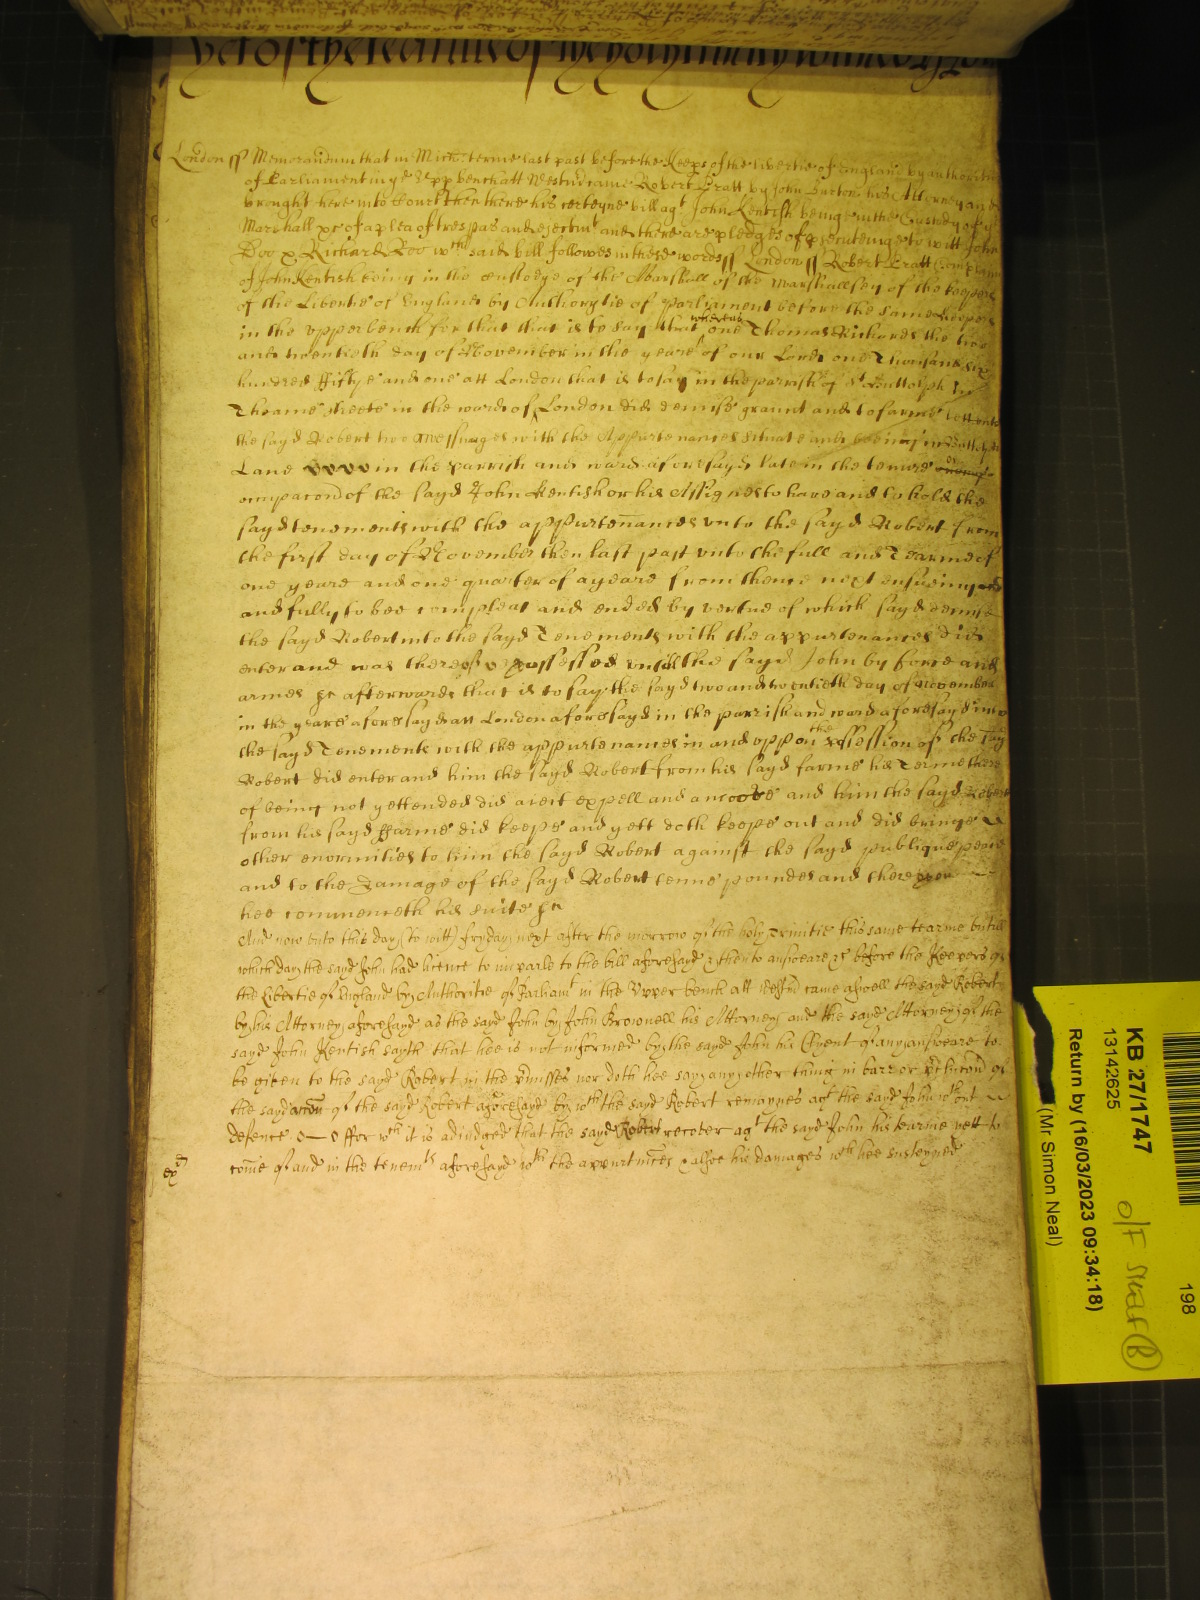 yet of the tearme of the holy trinity
London ss Memorandum that in Mich: terme last past before the Keeps of the libertie of England by authoritie
of Parliament in ye Vpp bench att Westm came Robert Pratt by John Burton his Attorney and
brought here into Court then there his certeyne bill agt John Kentish being in the Custody of ye
Marshall &c of a plea of trespas and ejectmt and there are pledges of psecuteinge to witt John
Doo & Richard Roo wch said bill followes in these words ss London ss Robert Pratt Complaines
of John Kentish being in the custodye of the Marshall of the Marshallsey of the keepers
of the Libertie of England by Authorytie of parliament before the same keepers
in the vpper bench for that that is to say that whereas one Thomas Richards the two
and twentieth day of November in the yeare of our Lord one Thousand six
hundred ffiftye and one att London that is to say in the parrish of St Buttolph in
Theame streete in the ward of London did demise graunt and to farme lett vnto
the sayd Robert two Messuages with the Appurtenances situate and beeing in
Lane in the parrish and ward aforesayd late in the tenure or
occupacond of the sayd John Kentish or his Assignes to have and to hold the
sayd tenements with the appurtenances vnto the sayd Robert from
the first day of November then last past vnto the full and Tearme of
one yeare and one quarter of a yeare from thence next ensueing
and fully to bee compleat and ended by vertue of which sayd demise
the sayd Robert into the sayd Tenements with the appurtenances did
enter and was thereof possessed untill the sayd John by force and
armes &c afterwards that is to say the sayd two and twentieth day of november
in the yeare aforesayd att London aforesayd in the parrish and ward aforesayd into
the sayd Tenements with the appurtenances in and vppon the possession of the sayd
Robert did enter and him the sayd Robert from his sayd farme his Terme there
of being not yett ended did eiect expell and amoove and him the sayd Robert
from his sayd ffarme did keepe and yett doth keepe out and did bringe
other enormities to him the sayd Robert against the sayd publique peace
and to the Damage of the sayd Robert tenne poundes and thereupon
hee commenceth his suite &c
And now vnto this day (to witt) fryday next after the morrow of the holy Trinitie this same tearme vntill
which day the sayd John had licence to imparle to the bill aforesayd & then to answeare &c before the Keepers of
the Libertie of England by Authoritie of Parliamt in the Vpper bench att Westm came aswell the sayd Robert
by his Attorney aforesayd as the sayd John by John Brownell his Attorney and the sayd Attorney of the
sayd John Kentish sayth that hee is not informed by the sayd John his Clyent of any answeare to
be given to the sayd Robert in the pmisses nor doth hee say any other thing in barr or pclucon of
the sayd accon of the sayd Robert aforesayd by wch the sayd Robert remaynes agt the sayd John wthout
defence ffor wch it is adiudged that the sayd Robert recover agt the sayd John his tearme yett to
come of and in the tenemts aforesayd wth the appurtnces & alsoe his damages wch hee susteyned
KB 27/1747
13142625
Return by (16/03/2023 09:34:18)
(Mr Simon Neal)
198
O/F